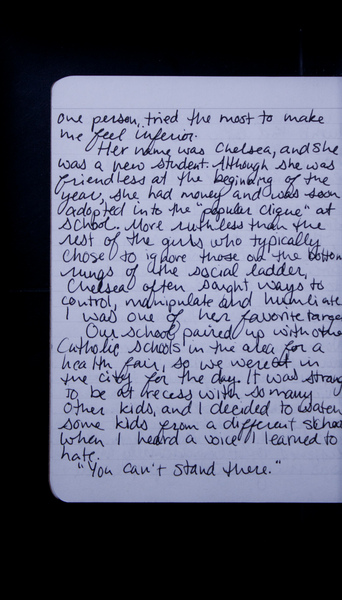 one person, tried the most to make
me feel inferior.
Her name was Chelsea, and she
was a new student. Although she was
friendless at the beginning of the
year, she had money and was soon
adopted into the "popular clique" at
school. More ruthless than the
rest of the girls who typically
chose to ignore those on the bottom
rungs of the social ladder,
Chelsea often sought ways to
control, manipulate and humiliate
I was one of her favorite targe
Our school paired up with othe
Catholic schools in the area for a
health fair, so we were in
the city for the day. It was strang
to be at recess with so many
other kids, and I decided to watch
some kids from a different school
when I heard a voice I learned to
hate.
"You can't stand there."